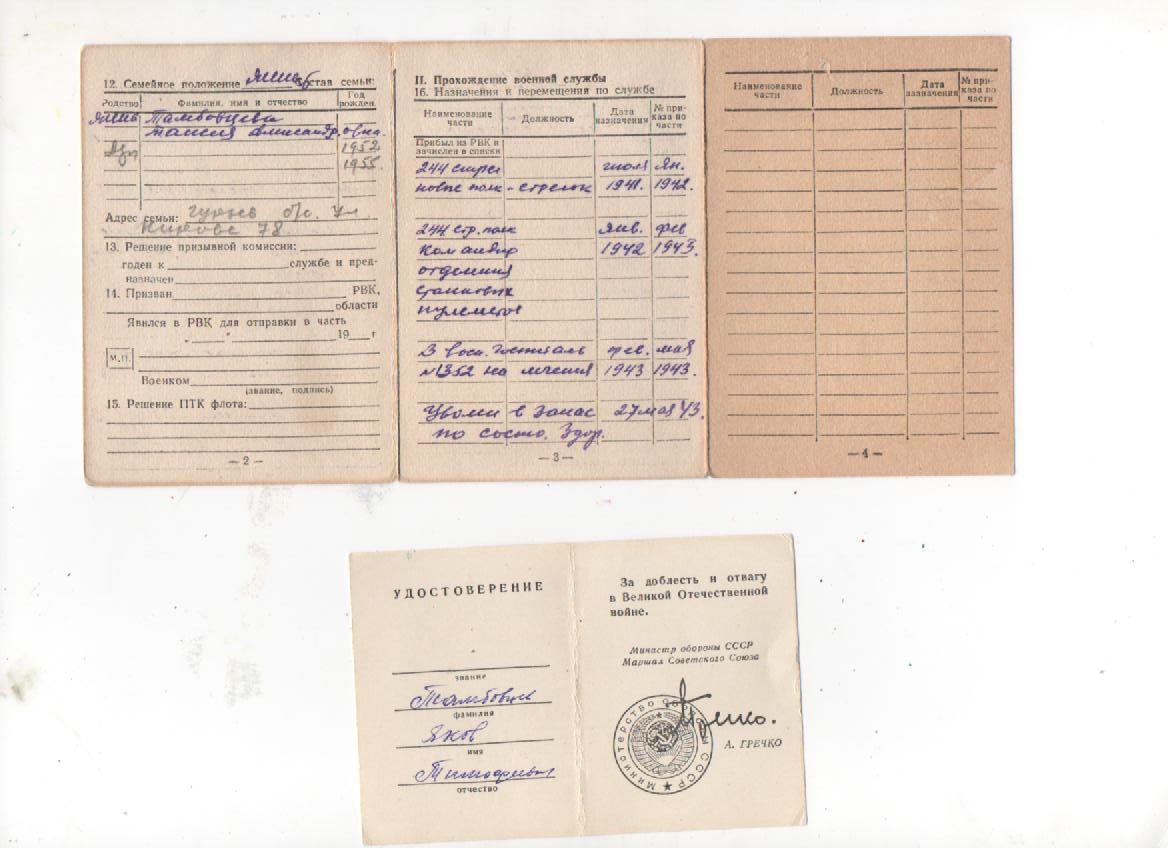 12. Семейное положение состав семьи:
Родство Фамилия, имя и отчество Год рожден.
Тамбовцева
Таисия Александровна
1952
1955
Адрес семьи: Гурьев
Кирова 78
13. Решение призывной комиссии:
годен к службе и пред-
назначен
14. Призван РВК,
области
Явился в РВК для отправки в часть
" " 19 г
М.П.
Военком
(звание, подпись)
15. Решение ПТК флота:
— 2 —
II. Прохождение военной службы
16. Назначения и перемещения по службе
Наименование части Должность Дата назначения № при-каза по части
Прибыл из РВК и
зачислен в списки
244 стрел
ковые полк - стрелок 1941. 1942.
244 стр. полк янв. фев
Командир 1942 1943.
отделения
станковых
пулеметов
В воен. госпиталь фев. мая
№1352 на лечения 1943 1943.
Уволен в запас 27 мая 43.
по состо. Здор.
— 3 —
Наименование части Должность Дата назначения № при-каза по части
— 4 —
УДОСТОВЕРЕНИЕ
звание
Тамбовцев
фамилия
Яков
имя
Тимофеевич
отчество
За доблесть и отвагу
в Великой Отечественной
войне.
Министр обороны СССР
Маршал Советского Союза
Министерство обороны СССР
А. ГРЕЧКО